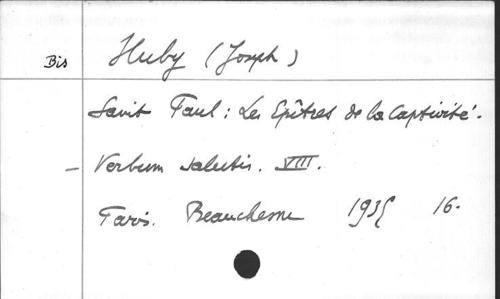 Bis Huby (Joseph)
Saint Paul : Les Epîtres de la Captivité.
- Verbum salutis. VIII.
Paris. Beauchesne 1935 16-